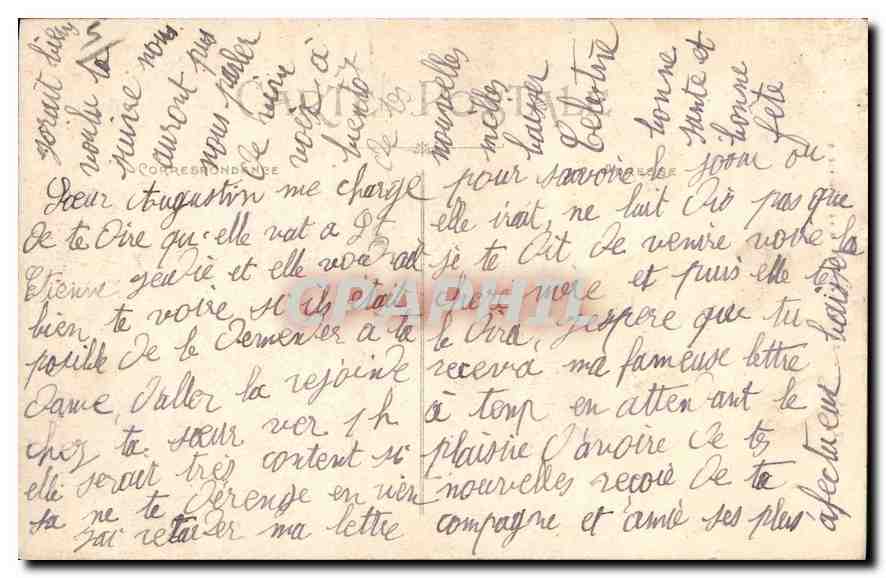 CARTE POSTALE
CORRESPONDANCE
ADRESSE
Sœur Augustin me charge
de te dire qu'elle vat a St
Etienne Jeudie et elle voudrait
bien te voire si ils était
posible de le demender a ta
dame d'aller la rejoinde
chez ta sœur ver 1 h
elle serait très content si
sa ne te dérende en rien
J'ai retarder ma lettre
pour savoire le jour ou
elle irait, ne lait dis pas que
je te dit de venire voire la
chere mère et puis elle te
le dira, J'espere que tu
recevra ma fameuse lettre
à temp en attendant le
plaisire d'avoire de tes
nouvelles reçoie de ta
compagne et amie ses plus
afectueux baiser
serait bien
voulu la
suivre nous
auront pus
nous parler
de vive
voix à
bientôt
de tes
nouvelles
milles
baiser
Celestine
bonne
santé et
bonne
fête
CPAPHIL